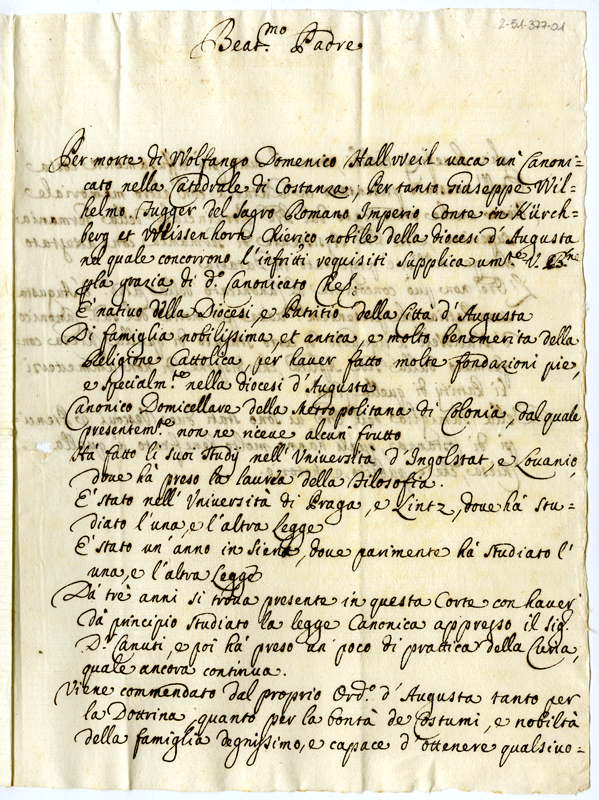 2-51-377-01
Beat.mo Padre
Per morte di Wolfango Domenico HallWeil vaca un' Canoni=
cato nella Catedrale di Costanza; Per tanto Giuseppe Wil=
helmo Fugger del Sagro Romano Imperio Conte in Kürch=
berg et Weissenhorn Chierico nobile della diocesi d'Augusta
nel quale concorrono l'infritti requisiti supplica um.te V. B.ne
p la grazia di d.o Canonicato
E' nativo della Diocesi, e Patritio della Città d'Augusta
Di famiglia nobilissima, et antica, e molto benemerita della
Religione Cattolica, per haver fatto molte fondazioni pie,
e specialm.te nella diocesi d'Augusta
Canonico Domicellare della Metropolitana di Colonia, dal quale
presentem.te non ne riceve alcun frutto
Ha fatto li suoi studij nell'Università d'Ingolstat, e Lovanio,
dove hà preso la laurea della Filosofia.
E' stato nell'Università di Praga, e Lintz, dove hà stu=
diato l'una, e l'altra legge
E' stato un'anno in Siena, dove parimente hà studiato l'
una, e l'altra Legge
Da trè anni si trova presente in questa Corte con haver
dà principio studiato la legge Canonica appresso il Sig.
D. Canuti, e poi hà preso un poco di prattica della Curia,
quale ancora continua.
Viene commendato dal proprio Ord.o d'Augusta tanto per
la Dottrina, quanto per la bontà de Costumi, e nobiltà
della famiglia degnissimo, e capace d'ottenere qualsivo=